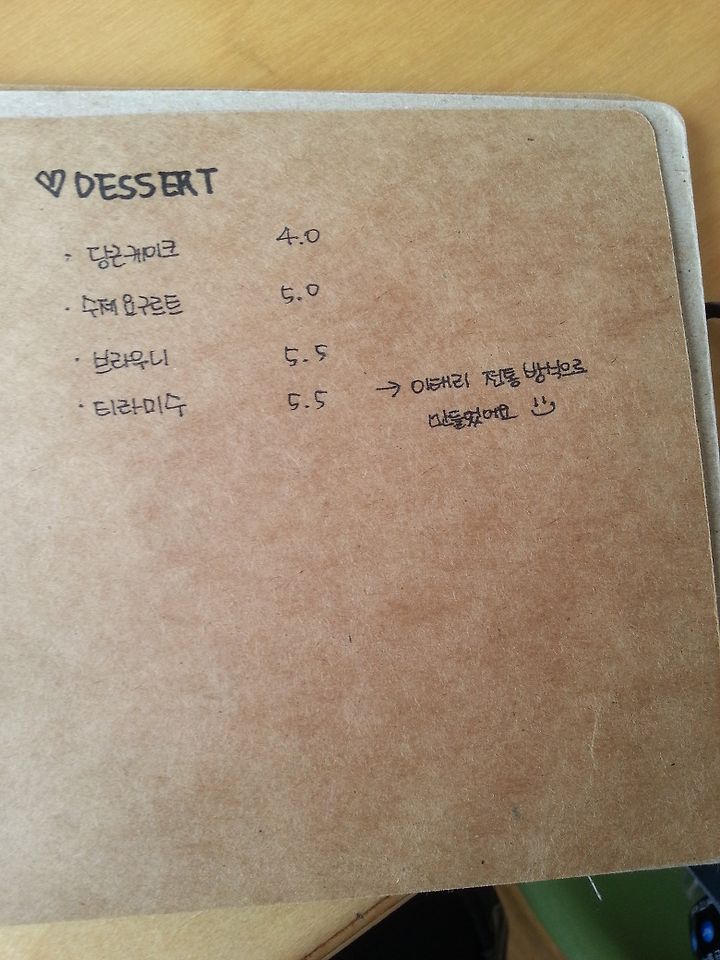 ♡ DESSERT
· 당근케이크 4.0
· 수제 요구르트 5.0
· 브라우니 5.5
· 티라미수 5.5 → 이태리 전통 방식으로
만들었어요 :)